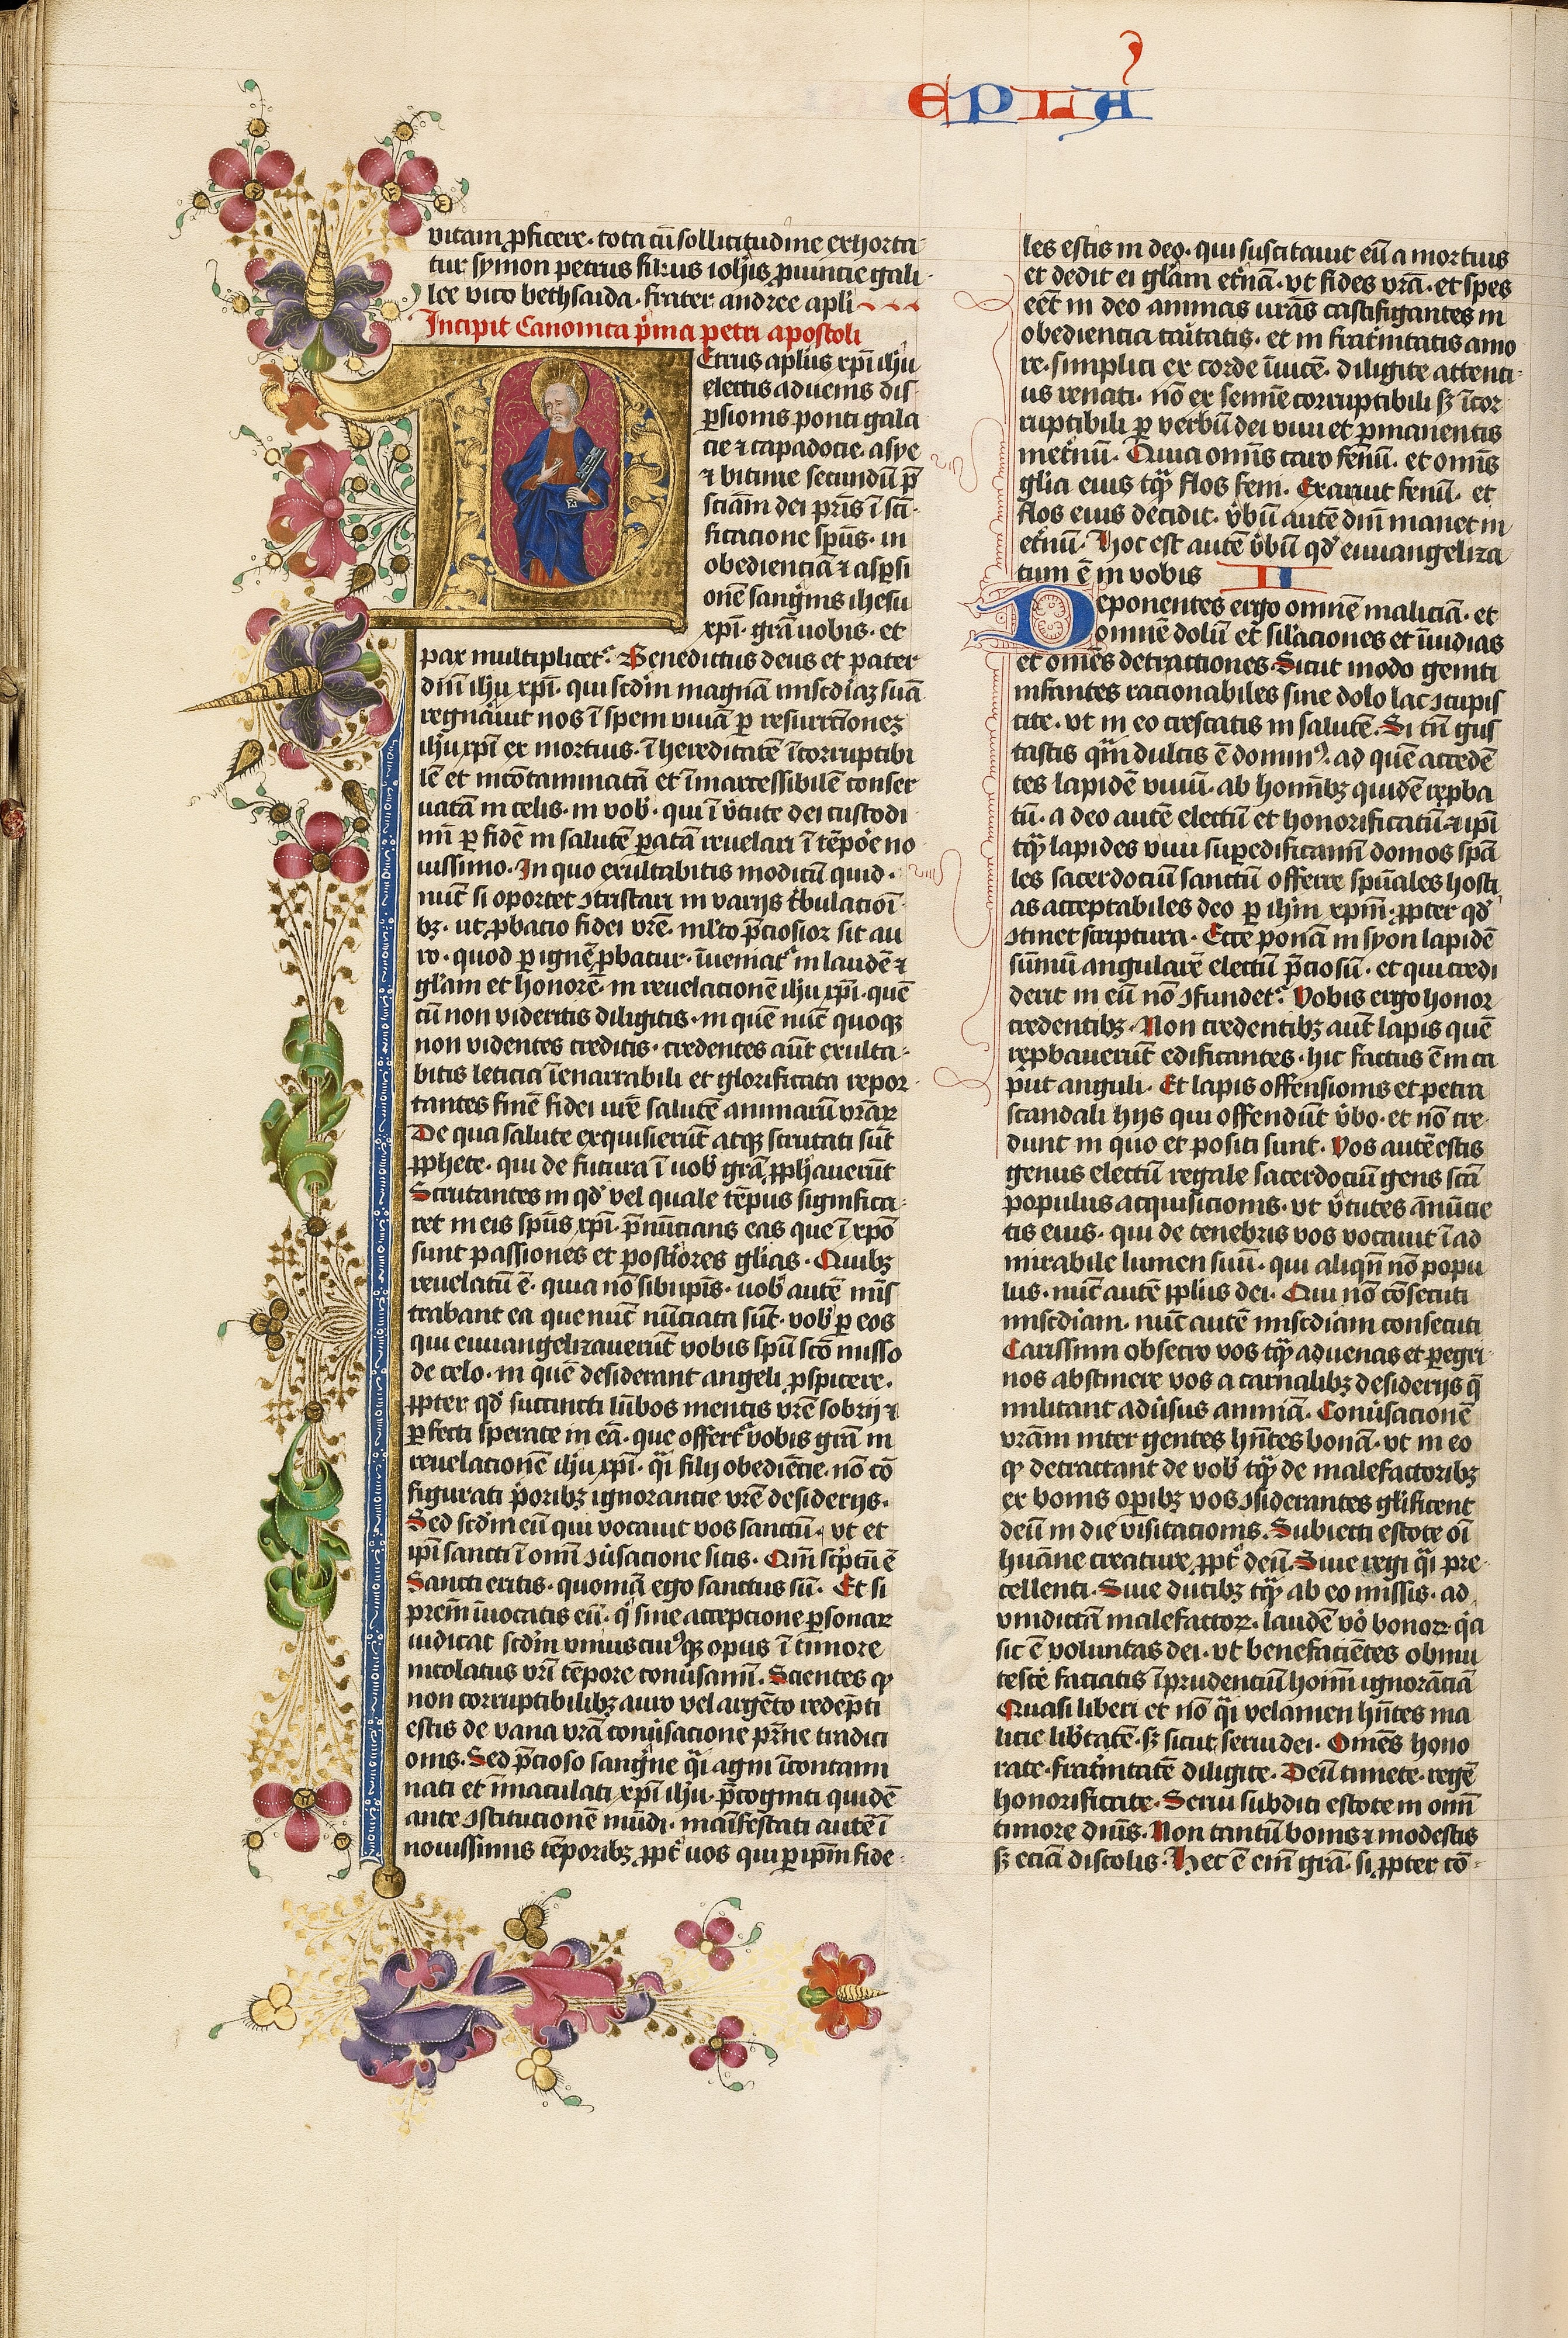 EPLA
vitam ꝓficere · tota cū sollicitudine exhorta-
tur symon petrus filius ioh̄is ꝓuincie gali-
lee vico bethsaida · frater andree apl̄i
Incipit Canonica p̄ma petri apostoli
PEtrus apl̄us xp̄i ih̄u
electis aduenis dis-
ꝑsionis ponti gala
cie ⁊ capadocie · asye
⁊ bitinie secundū p̄
sciā̄m dei pr̄is ī scī-
ficacione sp̄us · in
obedienciā ⁊ aspersi
onē sangīnis ihesu
xp̄i · grā uobis · et
pax multiplicet᷑ · Benedictus deus et pater
dn̄i ih̄u xp̄i · qui scd̄m magnā mīscdiaꝫ suā
regnāuit nos ī spem viuā ꝑ resurrcionēꝫ
ih̄u xp̄i ex mortuis · ī hereditatē īcorruptibi
lē et incōtaminatā et īmarcessibilē conser
uatā in celis · in vob̄ · qui ī v̄tute dei custodi
mī ꝑ fidē in salutē ꝑatā reuelari ī tēpoē no
uissimo · In quo exultabitis modicū quid ·
nūc si oportet ↄtristari in varijs tbulaciōī-
bꝫ · ut ꝓbacio fidei vr̄e · ml̄to p̄ciosior sit au
ro · quod ꝑ ignē ꝓbatur · īueniat᷑ in laudē ⁊
gl̄am et honorē · in reuelacionē ih̄u xp̄i · quē
cū non videritis diligitis · in quē nūc quoqꝫ
non videntes creditis · credentes aūt exulta-
bitis leticia īenarrabili et glorificata repor-
tantes finē fidei vr̄e salutē animarū vr̄aꝝ
De qua salute exquisierūt atqꝫ scrutati sūt
ꝓphete · qui de futura ī uob̄ grā ꝓph̄auerūt
Scrutantes in qd̄ vel quale tēpus significa-
ret in eis sp̄us xp̄i · p̄nūcians eas que ī xp̄o
sunt passiones et post̄iores gl̄ias · Quibꝫ
reuelatū ē · quia nō sibiip̄is · uob̄ autē mīs
trabant ea que nūc nūciata sūt · vob̄ ꝑ eos
qui euuangelizauerūt vobis sp̄u scō misso
de celo · in quē desiderant angeli ꝓspicere ·
ꝓpter qd̄ succincti lūbos mentis vr̄e sobrij ⁊
ꝑfecti sperate in eā · que offert᷑ vobis grā in
reuelacionē ih̄u xp̄i · q̄i filij obediēcie · nō cō
figurati p̄oribꝫ ignorancie vr̄e desiderijs ·
Sed scd̄m eū qui vocauit vos sanctū · vt et
ip̄i sancti ī omī ↄūsacione sitis · Qm̄ scͥptū ē
Sancti eritis · quoniā ego sanctus sū · Et si
prēm īuocatis eū · q̄ sine accepcione ꝑsonaꝝ
iudicat scd̄m vniuscuiꝰqꝫ opus ī timore
incolatus vr̄i tēpore conūsamī · Scientes ꝙ
non corruptibilibꝫ auro vel argēto redēpti
estis de vana vr̄a conūsacione pr̄ne tradici
onis · Sed p̄cioso sangīne q̄i agni īcontami
nati et īmaculati xp̄i ih̄u · p̄cogniti quidē
ante ↄstitucionē mūdi · maīfestati autē ī
nouissimis tēporibꝫ ꝓpt̄ uos qui ꝑ ip̄m fide-
les estis in deo · qui suscitauit eū a mortuis
et dedit ei gl̄am et̄nā · vt fides vr̄a · et spes
eēt in deo animas vrās castifigantes in
obediencia caītatis · et in frat̄nitatis amo
re · simplici ex corde īuicē · diligite attenci-
us renati · nō ex semīe corruptibili sꝫ īcor-
ruptibili ꝑ verbū dei viui et ꝑmanentis
inet̄nū · Quia omīs caro fenū · et omīs
gl̄ia eius tqꝫ̄ flos feni · Exaruit fenū · et
flos eius decidit · v̄bū autē dn̄i manet in
et̄nū · Hoc est autē v̄bū qd̄ euuangeliza
tum ē in vobis II
Deponentes ergo omnē maliciā · et
omnē dolū et sil̄aciones et īuidias
et omēs detractiones · Sicut modo geniti
infantes racionabiles sine dolo lac ↄcupis
cite · vt in eo crescatis in salutē · Si tn̄ gus
tastis qm̄ dulcis ē dominꝰ · ad quē acceden
tes lapidē viuū · ab homībꝫ quidē reꝓba
tū · a deo autē electū et honorificatū · ⁊ ip̄i
tqꝫ̄ lapides viui suꝑedificamī domos sp̄a
les sacerdociū sanctū offerre sp̄uales hosti
as acceptabiles deo ꝑ ih̄m xp̄m · ꝓpter qd̄
ↄtinet scriptura · Ecce ponā in syon lapidē
sūmū angularē electū p̄ciosū · et qui credi
derit in eū nō ↄfundet᷑ · Vobis ergo honor
credentibꝫ · Non credentibꝫ aūt lapis quē
reꝓbauerūt edificantes · hic factus ē in ca
put anguli · Et lapis offensionis et petra
scandali hijs qui offendūt v̄bo · et nō cre-
dunt in quo et positi sunt · Vos autē estis
genus electū regale sacerdociū gens scā
populus acquisicionis · vt v̄tutes ānūcie
tis eius · qui de tenebris vos vocauit ī ad
mirabile lumen suū · qui aliqn̄ nō popu
lus · nūc autē ꝓplus dei · Qui nō cōsecuti
miscdiam · nūc autē miscdiam consecuti
Carissimi obsecro vos tqꝫ̄ aduenas et ꝑegri-
nos abstinere vos a carnalibꝫ desiderijs q̄
militant adūsus animā · Conūsacionē
vrām inter gentes hn̄tes bonā · vt in eo
ꝙ detractant de vob̄ tqꝫ̄ de malefactoribꝫ
ex bonis oꝑibꝫ vos ↄsiderantes gl̄ificent
deū in die visitacionis · Subiecti estote oī
huāne creature ꝓpt̄ deū · Siue regi q̄i pre-
cellenti · Siue ducibꝫ tqꝫ̄ ab eo missis · ad
vnīdictā malefactoꝝ · laudē v̄o bonoꝝ · q̄a
sic ē voluntas dei · vt benefaciētes obmu
tescē faciatis īprudenciū hoīm ignorāciā
Quasi liberi et nō q̄i velamen hn̄tes ma
licie lib̄tatē · sꝫ sicut serui dei · Omēs hono
rate · frat̄nitatē diligite · Deū timete · regē
honorificate · Serui subditi estote in omī
timore dn̄is · Non tantū bonis ⁊ modestis
sꝫ eciā discolis · Hec ē enī grā · si ꝓpter cō-